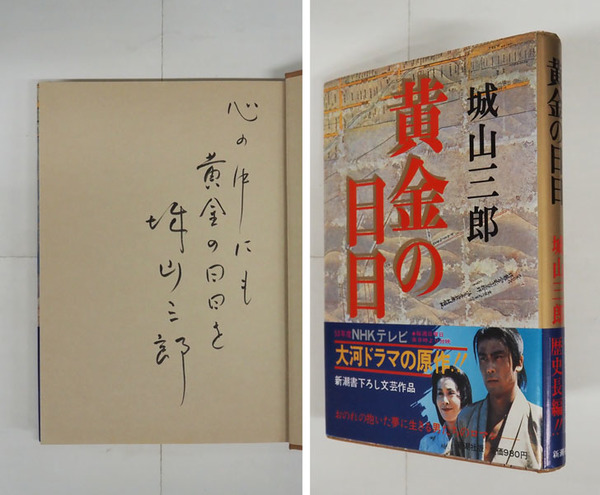 心の中にも
黄金の日日を
城山三郎
城山三郎
黄金の
日日
NHKテレビ
大河ドラマの原作!!
新潮書下ろし文芸作品
おのれの抱いた夢に生きる
価980円
黄金の日日
城山三郎
歴史長編!!
新潮